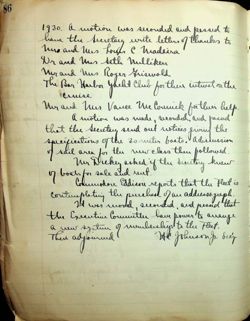 86
1930. A motion was seconded and passed to
have the Secretary write letters of thanks to
Mr and Mrs Louis C Madeira
Dr and Mrs Seth Milliken
Mr and Mrs Roger Griswold
The Bar Harbor Yacht Club for their interest on the
cruise
Mr and Mrs Vance McCormick for their help
A motion was made, seconded, and passed
that the Secretary send out notices giving the
specifications of the 30 meter boats. A discussion
of sail area for the new class then followed.
Mr Dickey asked if the Secretary knew
of boats for sale and rent.
Commodore reports that the Fleet is
contemplating the purchase of an addressograph.
It was moved, seconded, and passed that
the Executive Committee have power to arrange
a new system of membership to the Fleet.
Then adjourned. Johnson Jr. Secty